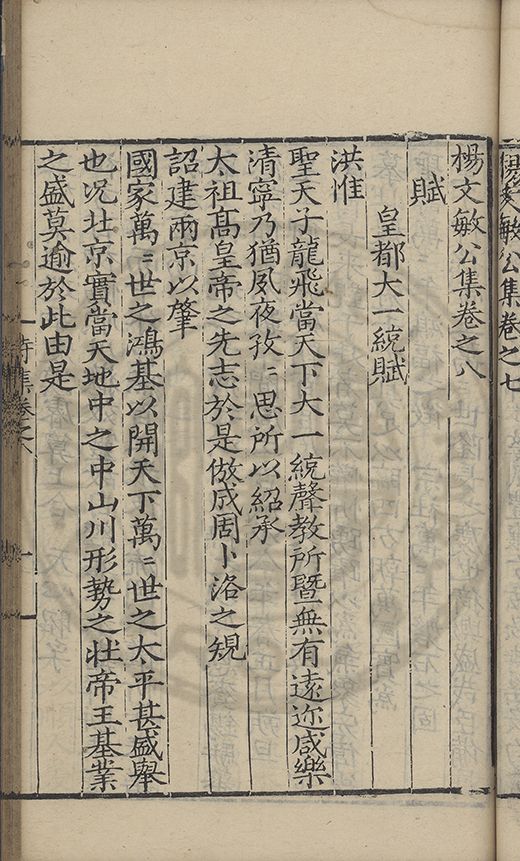 楊文敏公集卷之七
楊文敏公集卷之八
賦
皇都大一統賦
洪惟
聖天子龍飛當天下大一統聲教所暨無有遠迩咸樂
清寧乃猶夙夜孜〻思所以紹承
太祖高皇帝之先志於是倣成周卜洛之規
詔建兩京以肇
國家萬〻世之鴻基以開天下萬〻世之太平甚盛舉
也况北京實當天地中之中山川形勢之壯帝王基業
之盛莫逾於此由是
詩集卷之八